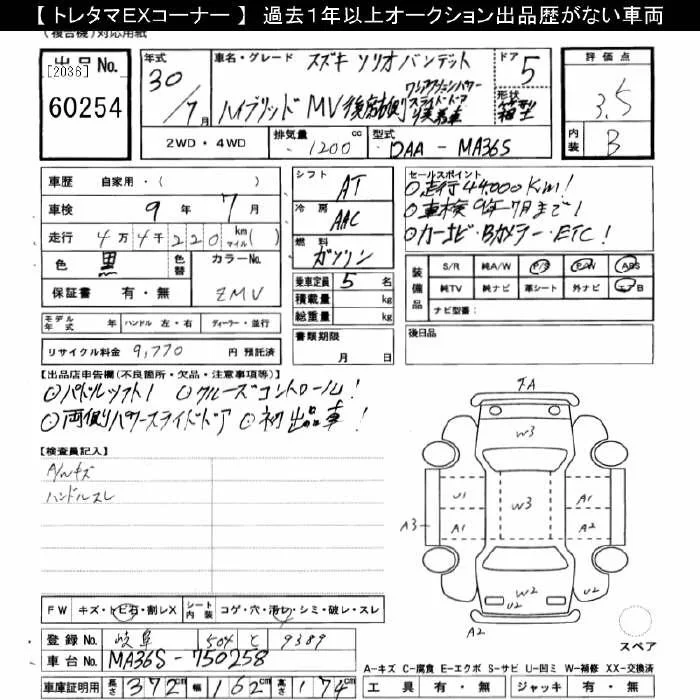 【 トレタマEXコーナー 】 過去1年以上オークション出品歴がない車両
(複合機)対応用紙
出品No.
[2036]
60254
年式
30/7月
車名・グレード
スズキ ソリオバンデット
ハイブリッドMV
ドア
5
形状
箱型
評価点
3.5
内装
B
2WD・4WD
排気量
1200 cc
型式
DAA - MA36S
車歴 自家用・( )
車検 9年 7月
走行 4万4千220 km マイル( )
色 黒 色替
カラーNo.
ZMV
保証書 有・無
シフト
AT
冷房
AAC
燃料
ガソリン
乗車定員 5 名
積載量 kg
総重量 kg
セールスポイント
○走行44,000Km!
○車検 9年7月まで!
○カーナビ・Bカメラー・ETC!
装備品
S/R 純A/W P/S P/W ABS
純TV 純ナビ 革シート 外ナビ エアB
ナビ型番:
モデル年式 年 ハンドル 左・右 ディーラー・並行
リサイクル料金 9,770 円 預託済
書類期限
月 日
後日品
【出品店申告欄(不良箇所・欠品・注意事項等)】
○パドルシフト! ○クルーズコントロール!
○両側パワースライドドア ○初出品車!
【検査員記入】
A/Wキズ
ハンドルスレ
FA
W3
U1
A1
A3
A1
W3
A1
A2
W2
U2
U2
A2
スペア
FW キズ・トビ石・割レX
シート内装 コゲ・穴・汚レ・シミ・破レ・スレ
登録No. 岐阜 504 と 9389
車台No. MA36S-750258
車庫証明用 長さ 372cm 幅 162cm 高さ 174cm
A-キズ C-腐食 E-エクボ S-サビ U-凹ミ W-補修 XX-交換済
工具 有・無 ジャッキ 有・無